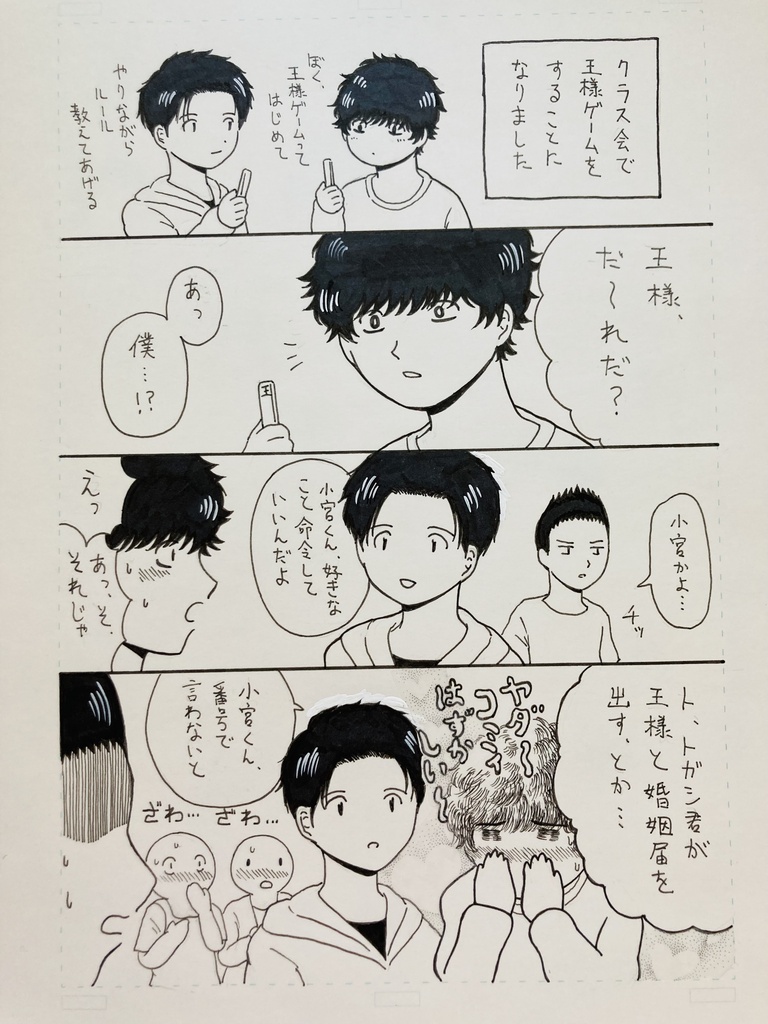 クラス会で
王様ゲームを
することに
なりました
ぼく、
王様ゲームって
はじめて
やりながら
ルール
教えてあげる
王様、
だ〜れだ?
王
あっ
僕…!?
小宮かよ…
チッ
小宮くん、好きな
こと命令して
いいんだよ
えっ
あっ、そ、
それじゃ
ト、トガシ君が
王様と婚姻届を
出す、とか…
ヤダ〜
コミィ
はずかしい〜
小宮くん、
番号で
言わないと
ざわ…
ざわ…